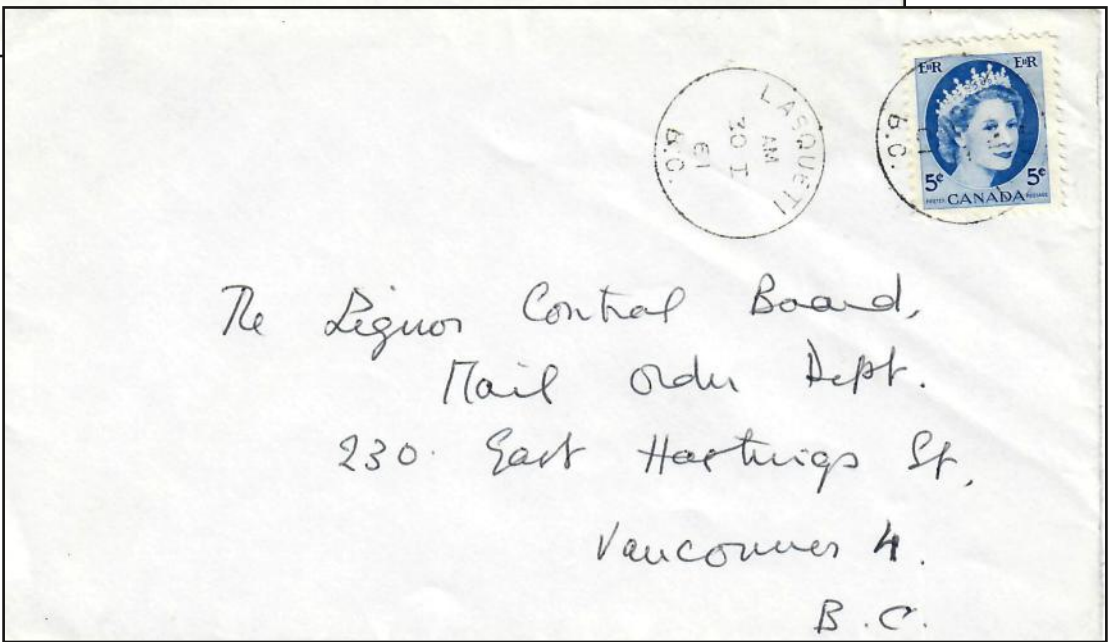 LASQUETI
AM
30 I
61
B.C.
EIIR EIIR
B.C.
5¢ 5¢
POSTES CANADA POSTAGE
The Liquor Control Board,
Mail order Dept.
230. East Hastings St,
Vancouver 4.
B.C.